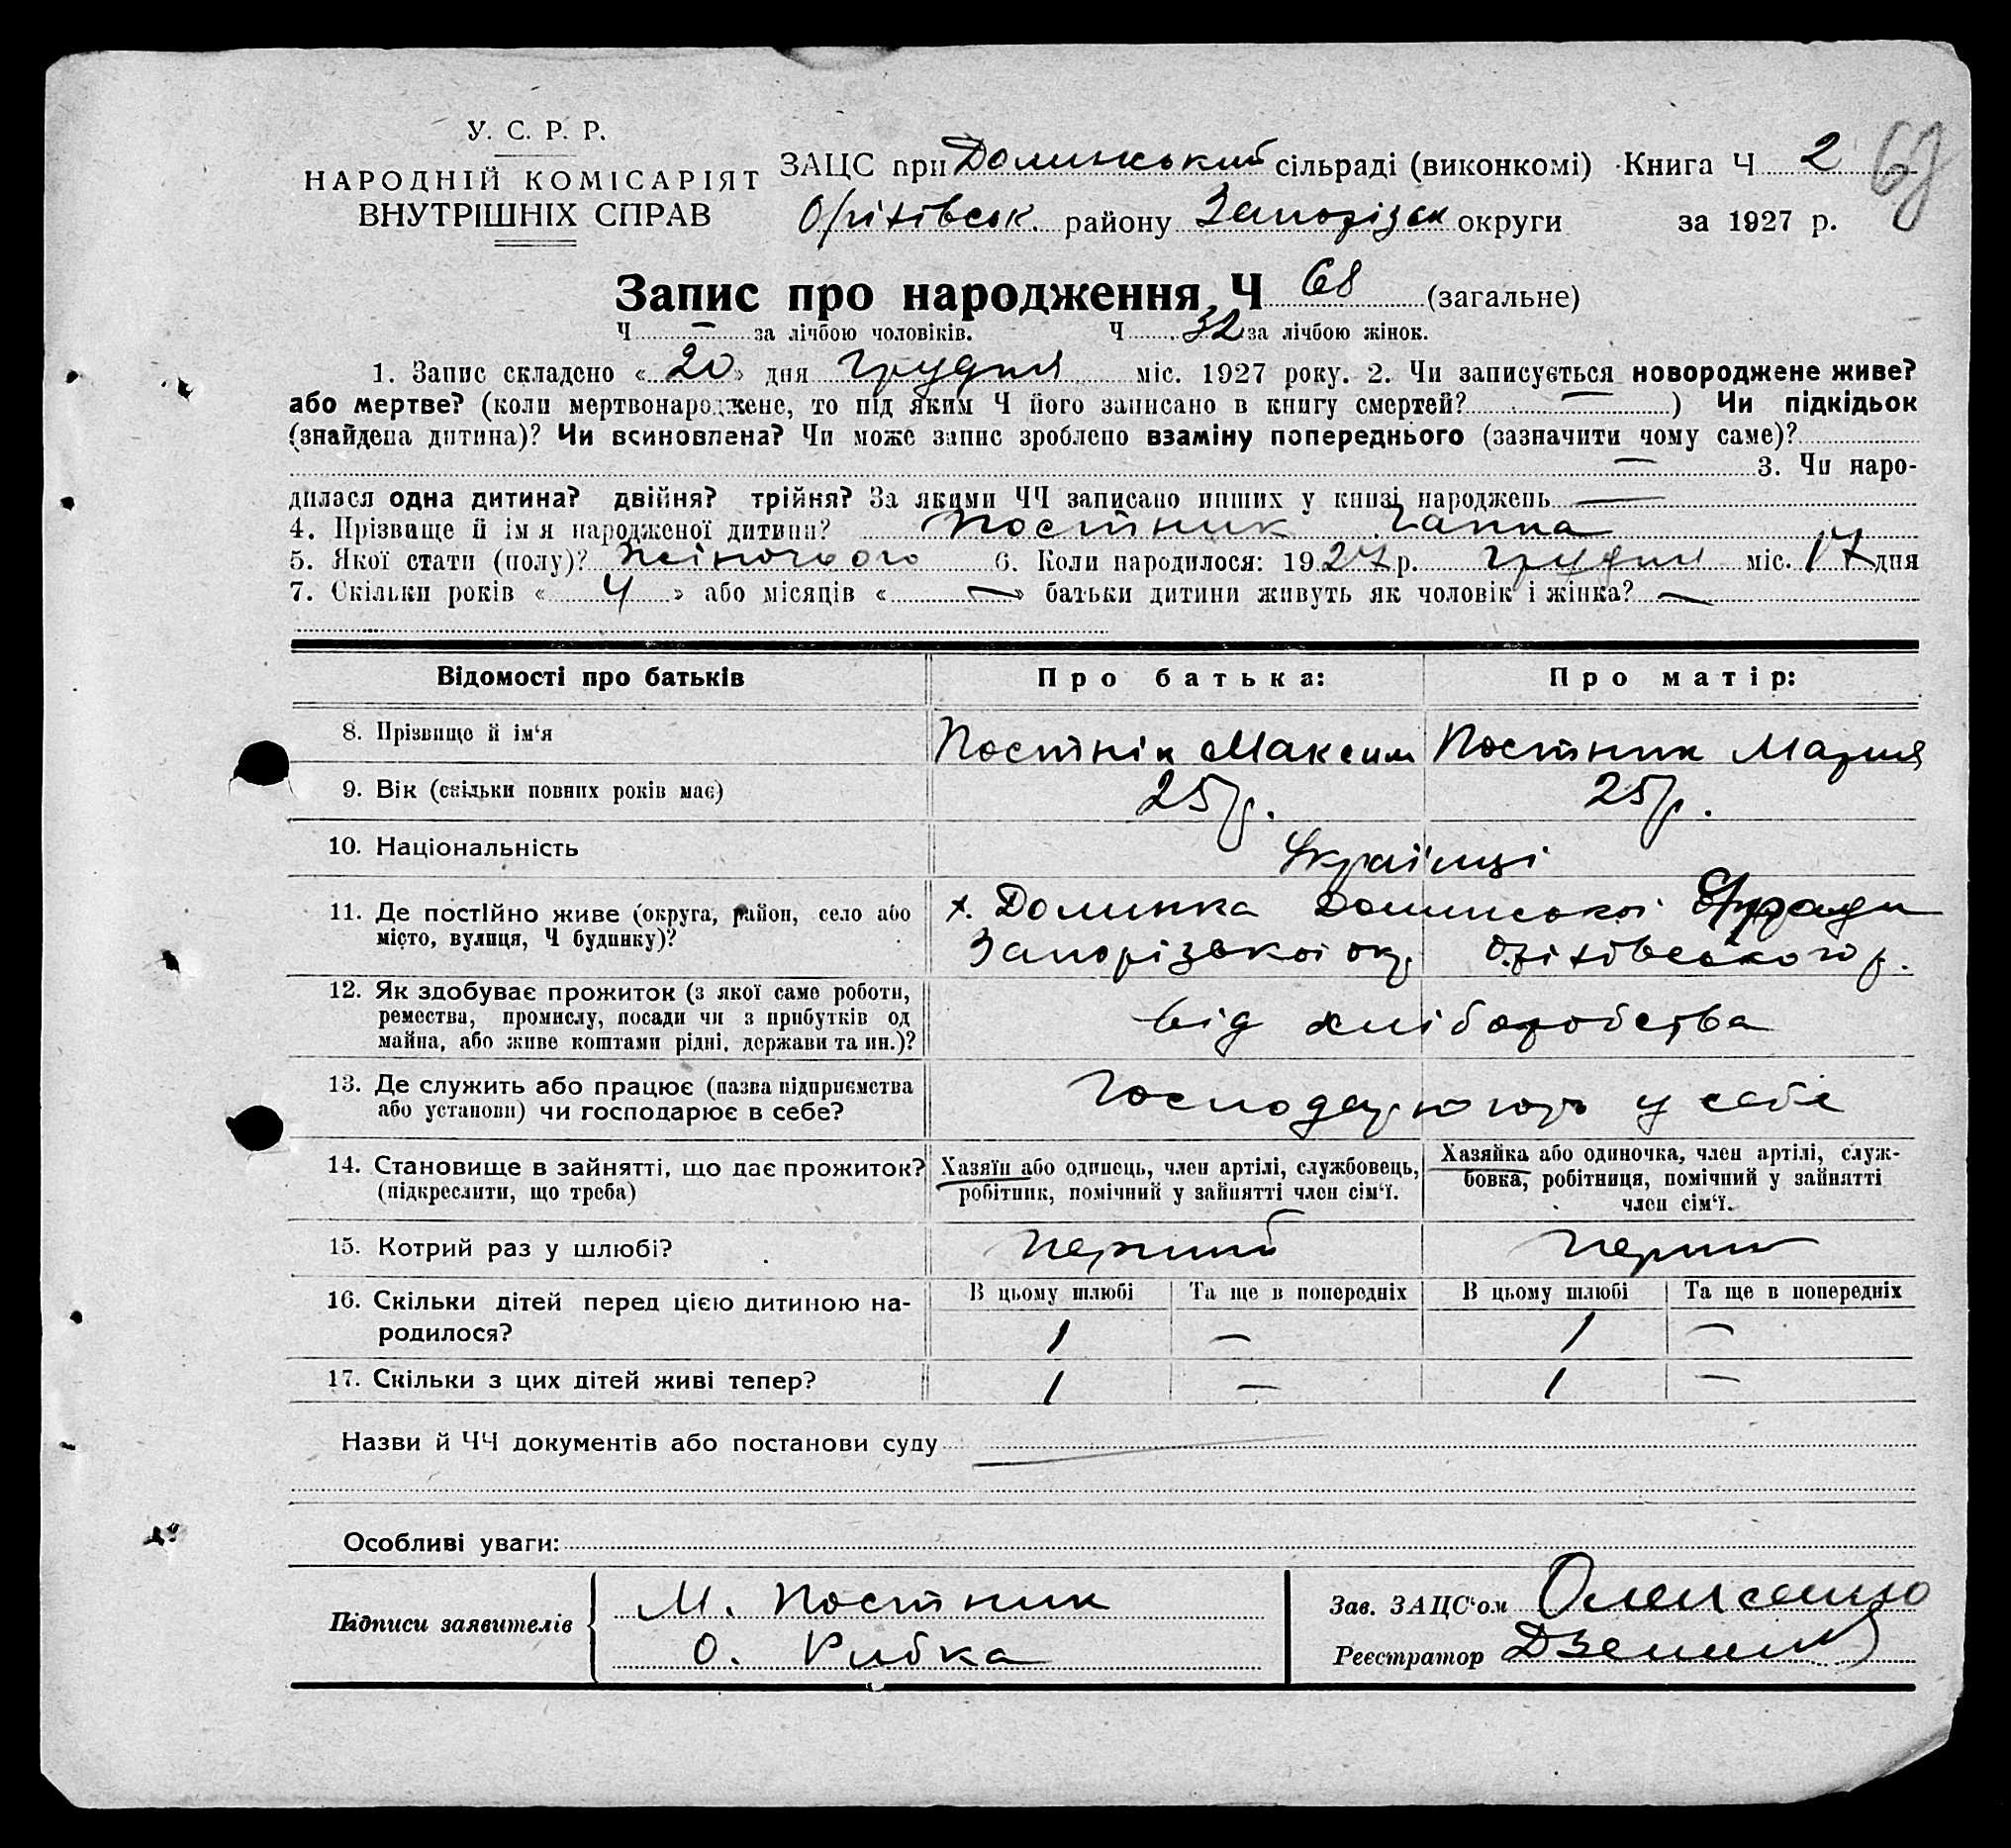 У. С. Р. Р.
НАРОДНІЙ КОМІСАРІЯТ
ВНУТРІШНІХ СПРАВ
ЗАЦС при Долинський сільраді (виконкомі) Книга Ч 2 68
Оріхівськ. району Запорізьк округи за 1927 р.
Запис про народження, Ч 68 (загальне)
Ч — за лічбою чоловіків. Ч 32 за лічбою жінок.
1. Запис складено «20» дня грудня міс. 1927 року. 2. Чи записується новороджене живе?
або мертве? (коли мертвонароджене, то під яким Ч його записано в книгу смертей? — ) Чи підкідьок
(знайдена дитина)? Чи всиновлена? Чи може запис зроблено взаміну попереднього (зазначити чому саме)?
— 3. Чи наро-
дилася одна дитина? двійня? трійня? За якими ЧЧ записано инших у книзі народжень —
4. Прізвище й ім я народженої дитини? Постник Ганна
5. Якої стати (полу)? Жіночого 6. Коли народилося: 1927 р. грудня міс. 17 дня
7. Скільки років « 4 » або місяців « — » батьки дитини живуть як чоловік і жінка? —
Відомості про батьків Про батька: Про матір:
8. Прізвище й ім‘я Постнік Максим Постник Мария
9. Вік (скільки повних років має) 25 р. 25 р.
10. Національність Українці
11. Де постійно живе (округа, район, село або
місто, вулиця, Ч будинку)?
х. Долинка Долинської С/ради
Запорізької окр. Оріхівського р.
12. Як здобуває прожиток (з якої саме роботи,
ремества, промислу, посади чи з прибутків од
майна, або живе коштами рідні, держави та ин.)?
від хліборобства
13. Де служить або працює (назва підприємства
або установи) чи господарює в себе?
Господарюють у себе
14. Становище в зайнятті, що дає прожиток?
(підкреслити, що треба)
Хазяїн або одинець, член артілі, службовець,
робітник, помічний у зайнятті член сім‘ї.
Хазяйка або одиночка, член артілі, служ-
бовка, робітниця, помічний у зайнятті
член сім‘ї.
15. Котрий раз у шлюбі? Перший Перший
16. Скільки дітей перед цією дитиною на-
родилося?
В цьому шлюбі Та ще в попередніх В цьому шлюбі Та ще в попередніх
1 — 1 —
17. Скільки з цих дітей живі тепер? 1 — 1 —
Назви й ЧЧ документів або постанови суду
Особливі уваги:
Підписи заявителів
М. Постник
О. Рибка
Зав. ЗАЦС‘ом
Реєстратор